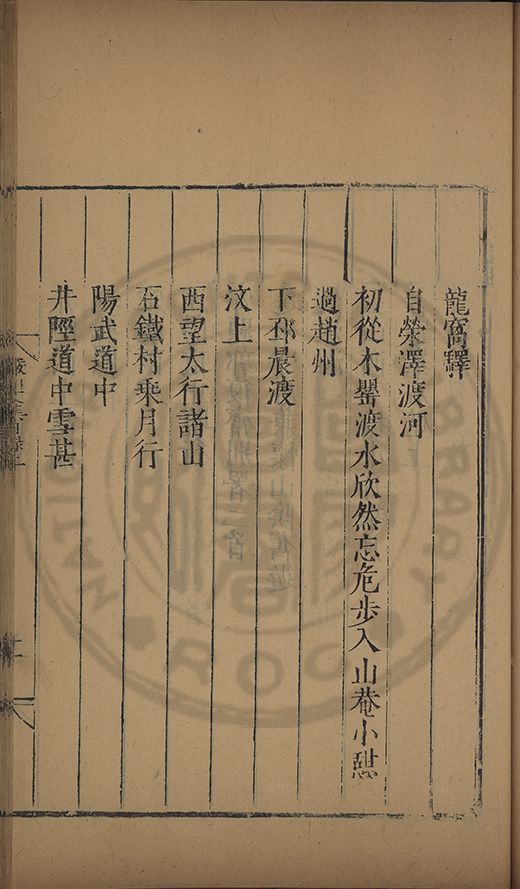 龍窩驛
自滎澤渡河
初從木罌渡水欣然忘危步入山菴小憇
過趙州
下邳晨渡
汶上
西望太行諸山
石鐵村乘月行
陽武道中
井陘道中雪甚